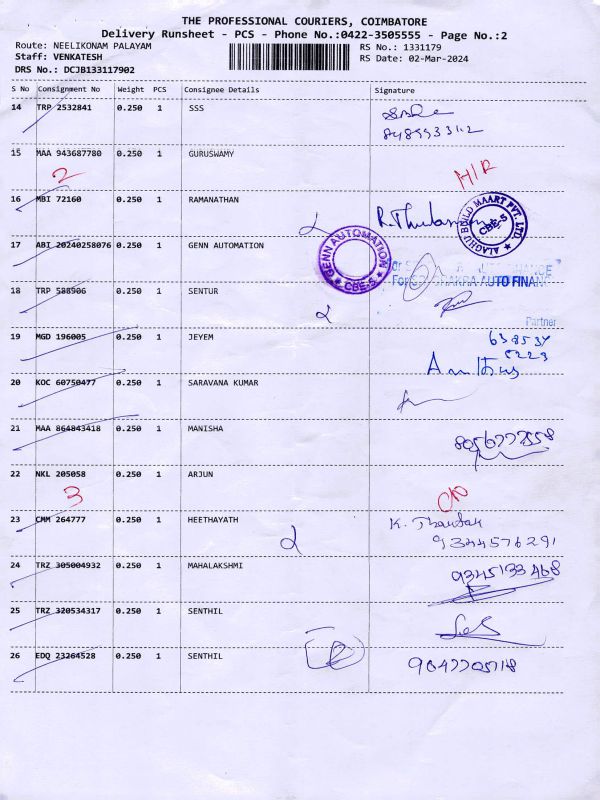 THE PROFESSIONAL COURIERS, COIMBATORE
Delivery Runsheet - PCS - Phone No.:0422-3505555 - Page No.:2
Route: NEELIKONAM PALAYAM
RS No.: 1331179
Staff: VENKATESH
RS Date: 02-Mar-2024
DRS No.: DCJB133117902
S No Consignment No Weight PCS Consignee Details Signature
14 TRP 2532841 0.250 1 SSS
15 MAA 943687780 0.250 1 GURUSWAMY
2 H/R
16 MBI 72160 0.250 1 RAMANATHAN
ALAGHU BUILD MAART PVT. LTD. CBE-5
17 ABI 20240258076 0.250 1 GENN AUTOMATION
GENN AUTOMATION CBE-5
AUTO FINANCE
18 TRP 588906 0.250 1 SENTUR
Partner
19 MGD 196005 0.250 1 JEYEM
638534
8223
20 KOC 60750477 0.250 1 SARAVANA KUMAR
21 MAA 864843418 0.250 1 MANISHA
8056777558
22 NKL 205058 0.250 1 ARJUN
3
23 CMM 264777 0.250 1 HEETHAYATH
K.
9344576291
24 TRZ 305004932 0.250 1 MAHALAKSHMI
9345133468
25 TRZ 320534317 0.250 1 SENTHIL
26 EDQ 23264528 0.250 1 SENTHIL